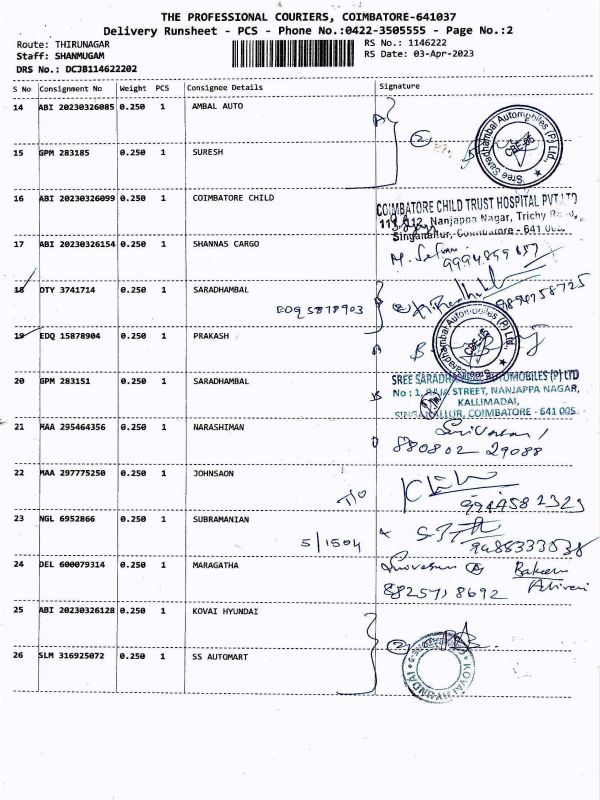 THE PROFESSIONAL COURIERS, COIMBATORE-641037
Delivery Runsheet - PCS - Phone No.:0422-3505555 - Page No.:2
Route: THIRUNAGAR
RS No.: 1146222
Staff: SHANMUGAM
RS Date: 03-Apr-2023
DRS No.: DCJB114622202
S No Consignment No Weight PCS Consignee Details Signature
14 ABI 20230326085 0.250 1 AMBAL AUTO
Sree Saradhambal Automobiles (P) Ltd., CBE-05
15 GPM 283185 0.250 1 SURESH
16 ABI 20230326099 0.250 1 COIMBATORE CHILD
COIMBATORE CHILD TRUST HOSPITAL PVT LTD
Nanjappa Nagar, Trichy Road,
Singanallur, Coimbatore - 641 005.
17 ABI 20230326154 0.250 1 SHANNAS CARGO
18 DTY 3741714 0.250 1 SARADHAMBAL
EDQ 5878903
19 EDQ 15878904 0.250 1 PRAKASH
20 GPM 283151 0.250 1 SARADHAMBAL
SREE SARADHAMBAL AUTOMOBILES (P) LTD
No : 1, RAJA STREET, NANJAPPA NAGAR,
KALLIMADAI,
SINGANALLUR, COIMBATORE - 641 005
21 MAA 295464356 0.250 1 NARASHIMAN
880802 29088
22 MAA 297775250 0.250 1 JOHNSAON
T/O
23 NGL 6952866 0.250 1 SUBRAMANIAN
5/1504
24 DEL 600079314 0.250 1 MARAGATHA
88257 18692
25 ABI 20230326128 0.250 1 KOVAI HYUNDAI
26 SLM 316925072 0.250 1 SS AUTOMART
KOVAI HYUNDAI